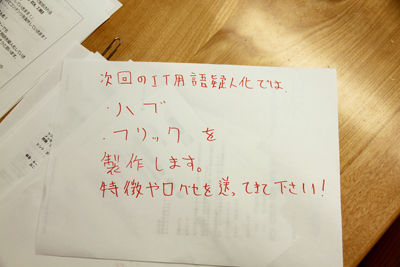 次回のIT用語疑人化では
・ハブ
・フリックを
製作します。
特徴や口クセを送ってきて下さい!